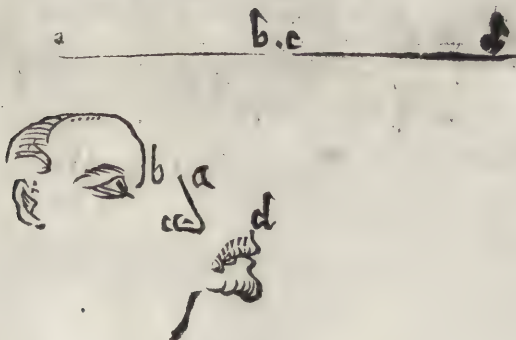 a b.c d
b a
d